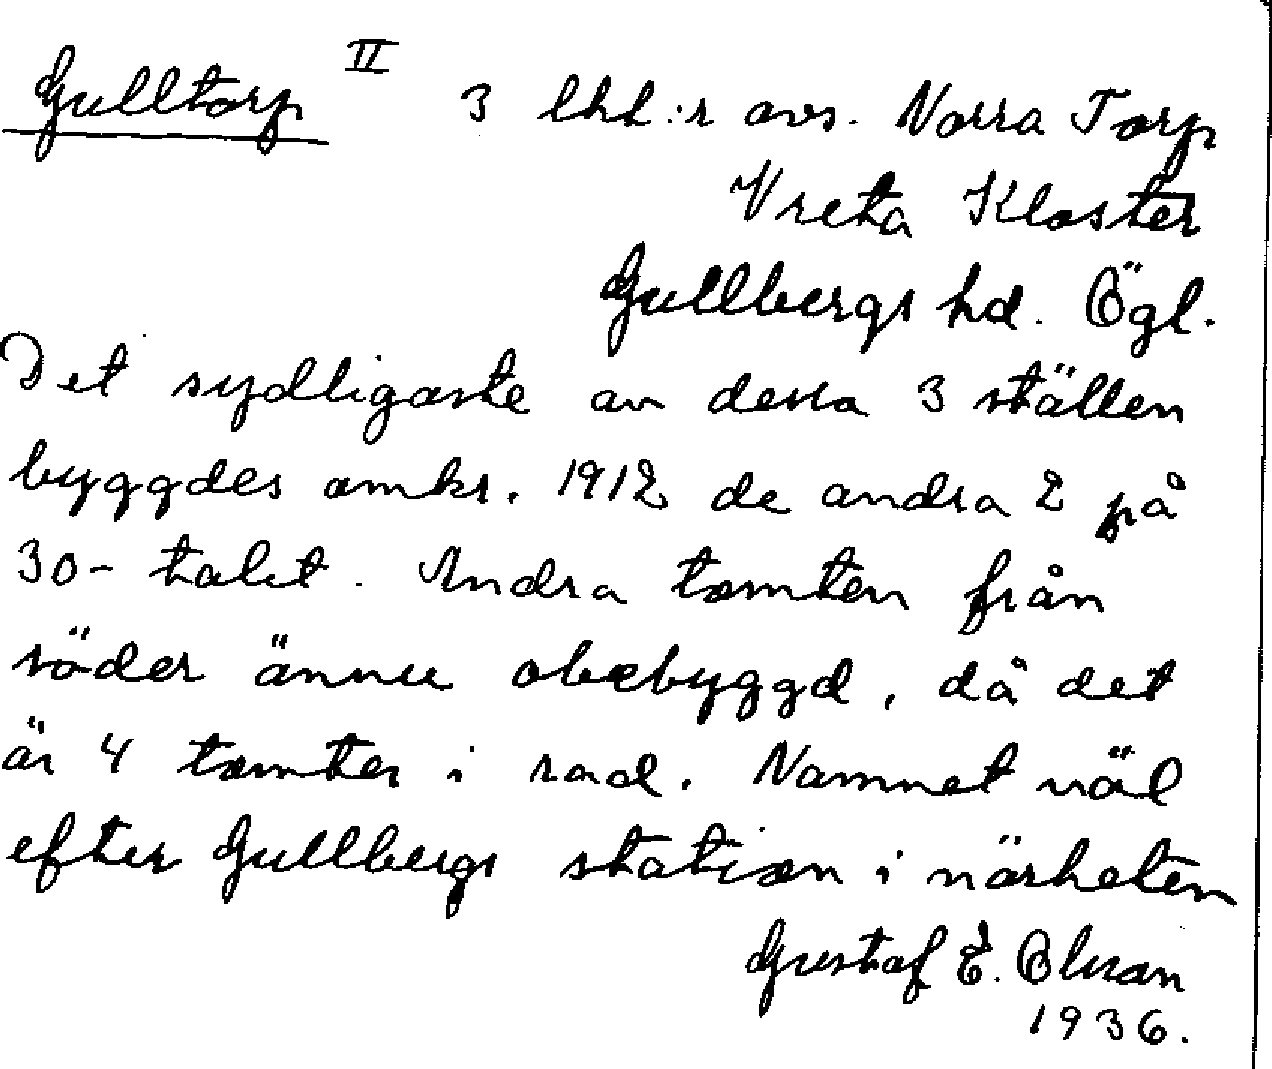 Gulltorp II 3 lhl:r avs. Norra Torp
Vreta Kloster
Gullbergs hd. Ögl.
Det sydligaste av dessa 3 ställen
byggdes omkr. 1912 de andra 2 på
30-talet. Andra tomten från
söder ännu obebyggd, då det
är 4 tomter i rad. Namnet väl
efter Gullbergs station i närheten
Gustaf E. Olsson
1936.